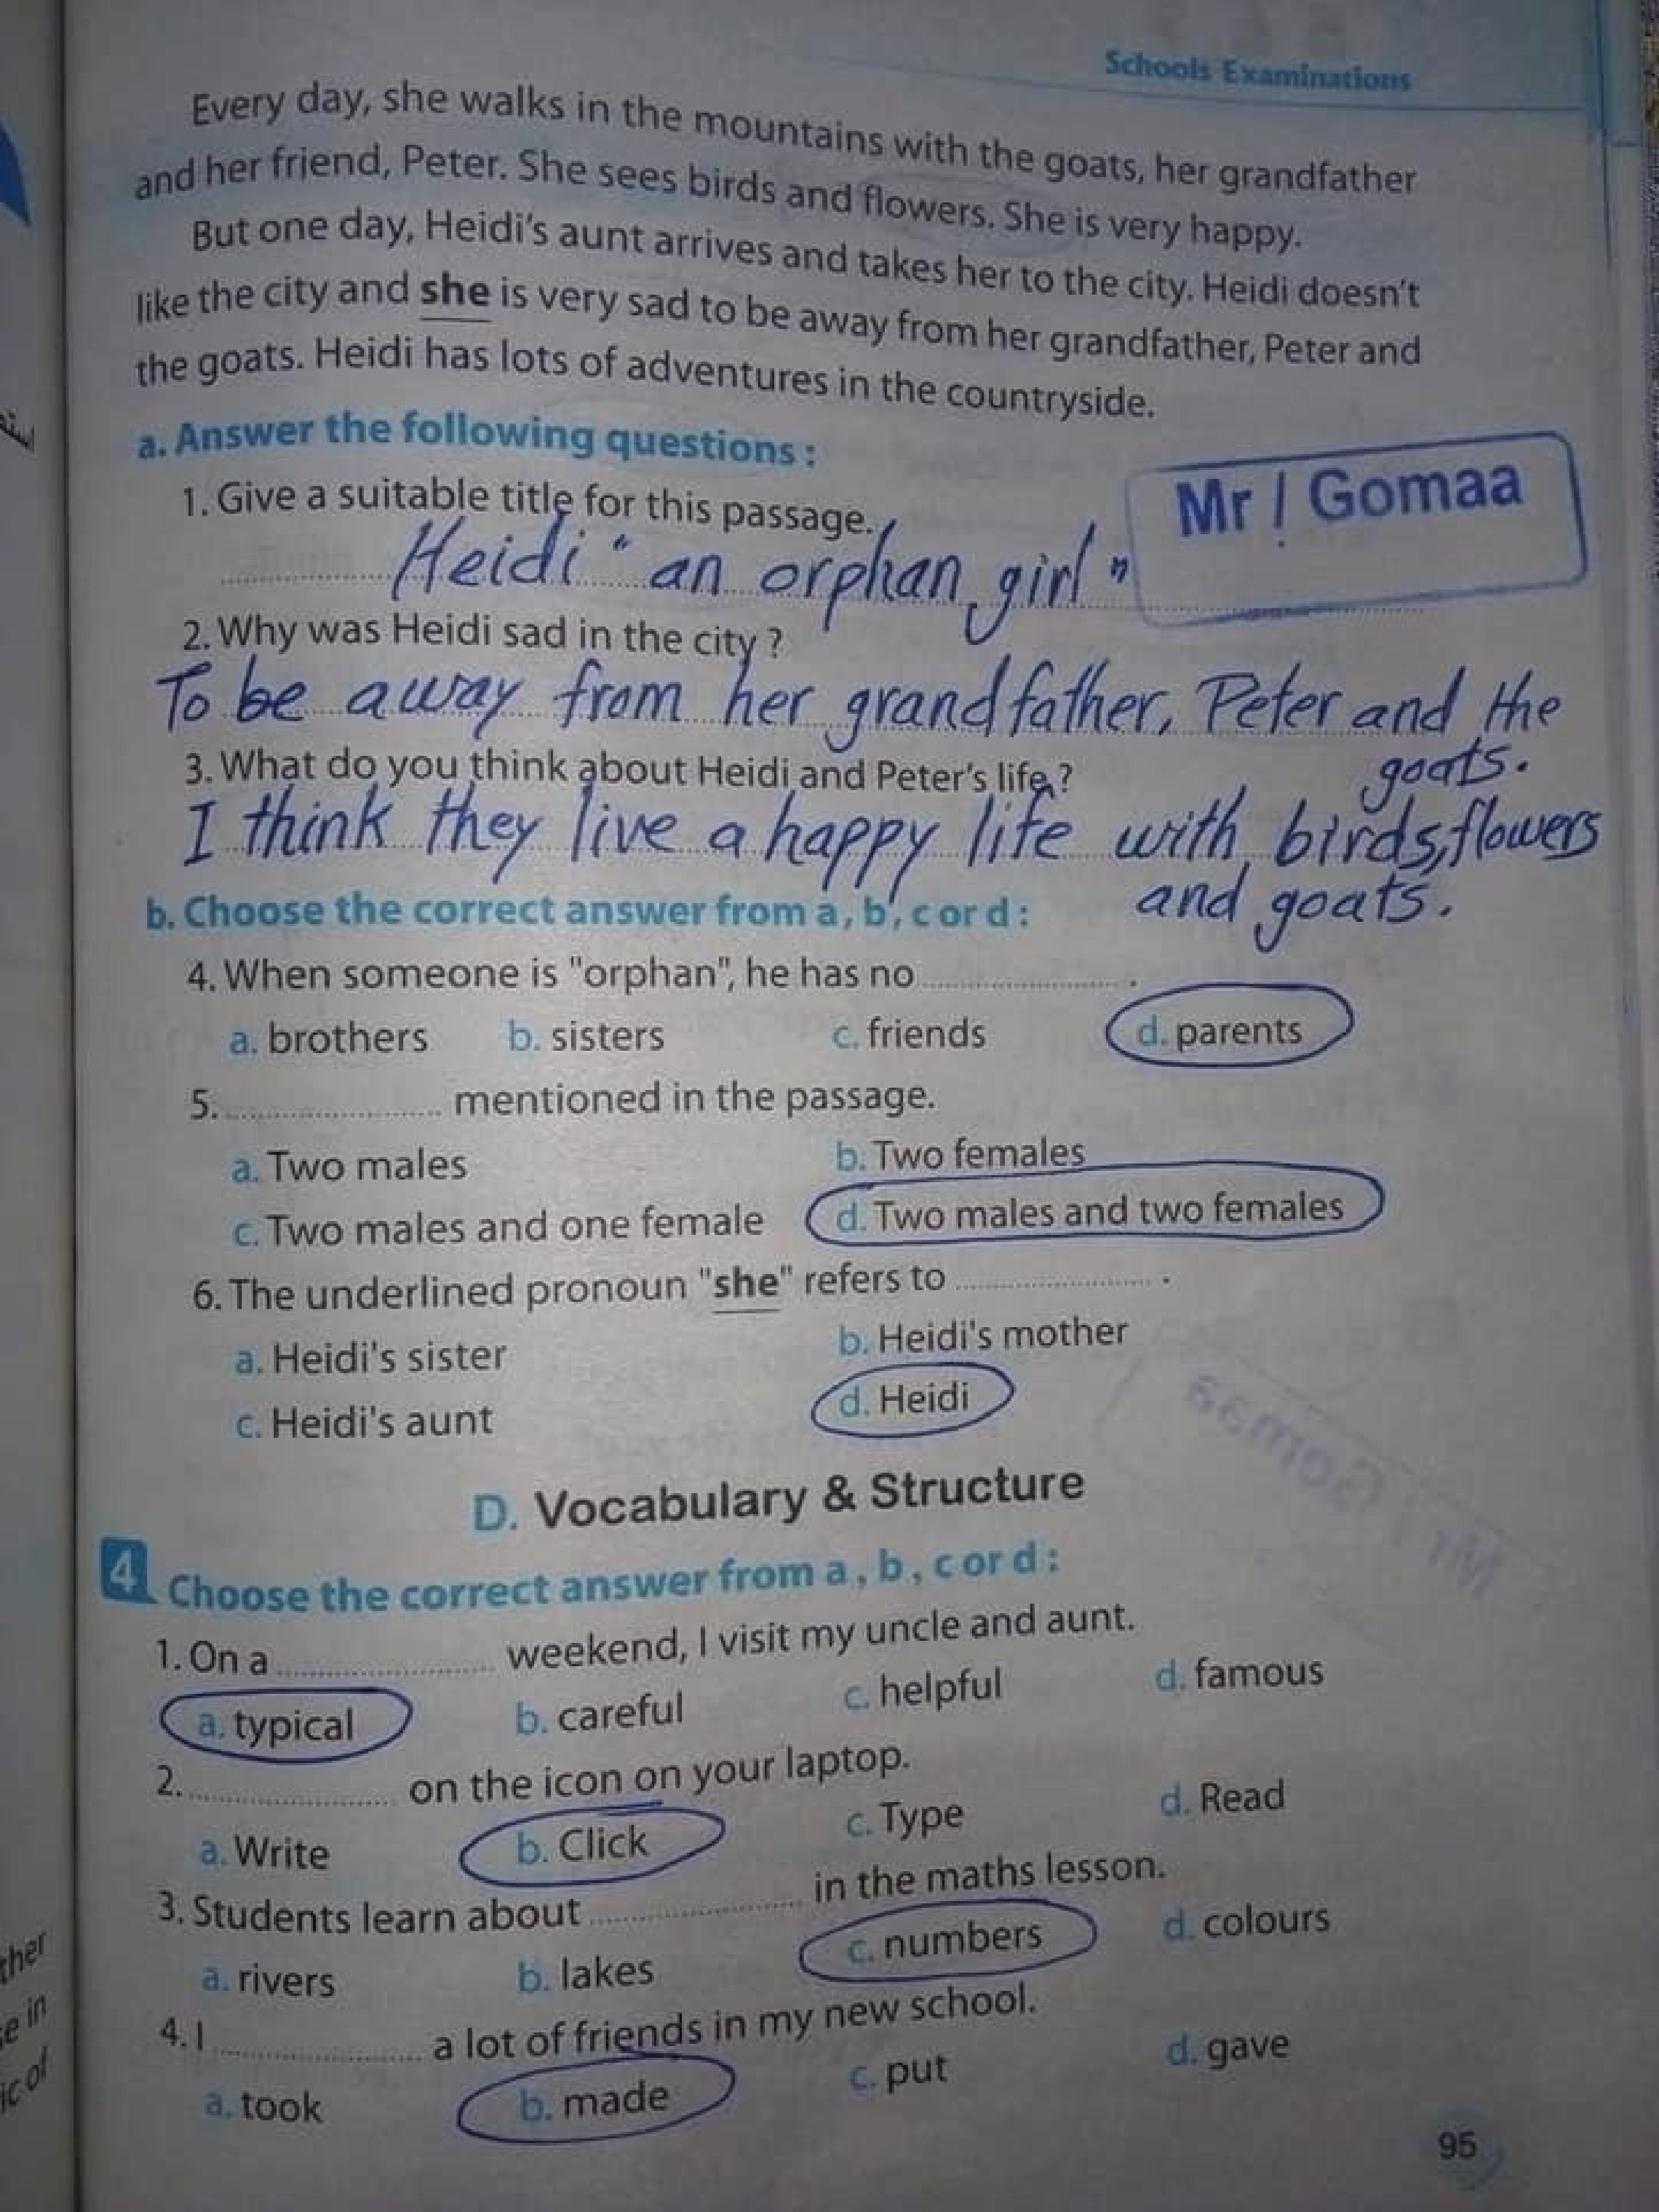 Schools Examinations
Every day, she walks in the mountains with the goats, her grandfather
and her friend, Peter. She sees birds and flowers. She is very happy.
But one day, Heidi's aunt arrives and takes her to the city. Heidi doesn't
like the city and she is very sad to be away from her grandfather, Peter and
the goats. Heidi has lots of adventures in the countryside.
a. Answer the following questions :
1. Give a suitable title for this passage.
Mr / Gomaa
Heidi "an orphan girl"
2. Why was Heidi sad in the city ?
To be away from her grandfather, Peter and the
goats.
3. What do you think about Heidi and Peter's life ?
I think they live a happy life with birds, flowers
and goats.
b. Choose the correct answer from a , b , c or d :
4. When someone is "orphan", he has no .................... .
a. brothers b. sisters c. friends d. parents
5. .................... mentioned in the passage.
a. Two males b. Two females
c. Two males and one female d. Two males and two females
6. The underlined pronoun "she" refers to .................... .
a. Heidi's sister b. Heidi's mother
c. Heidi's aunt d. Heidi
Mr / Gomaa
D. Vocabulary & Structure
4 Choose the correct answer from a , b , c or d :
1. On a .................... weekend, I visit my uncle and aunt.
a. typical b. careful c. helpful d. famous
2. .................... on the icon on your laptop.
a. Write b. Click c. Type d. Read
3. Students learn about .................... in the maths lesson.
a. rivers b. lakes c. numbers d. colours
4. I .................... a lot of friends in my new school.
a. took b. made c. put d. gave
95